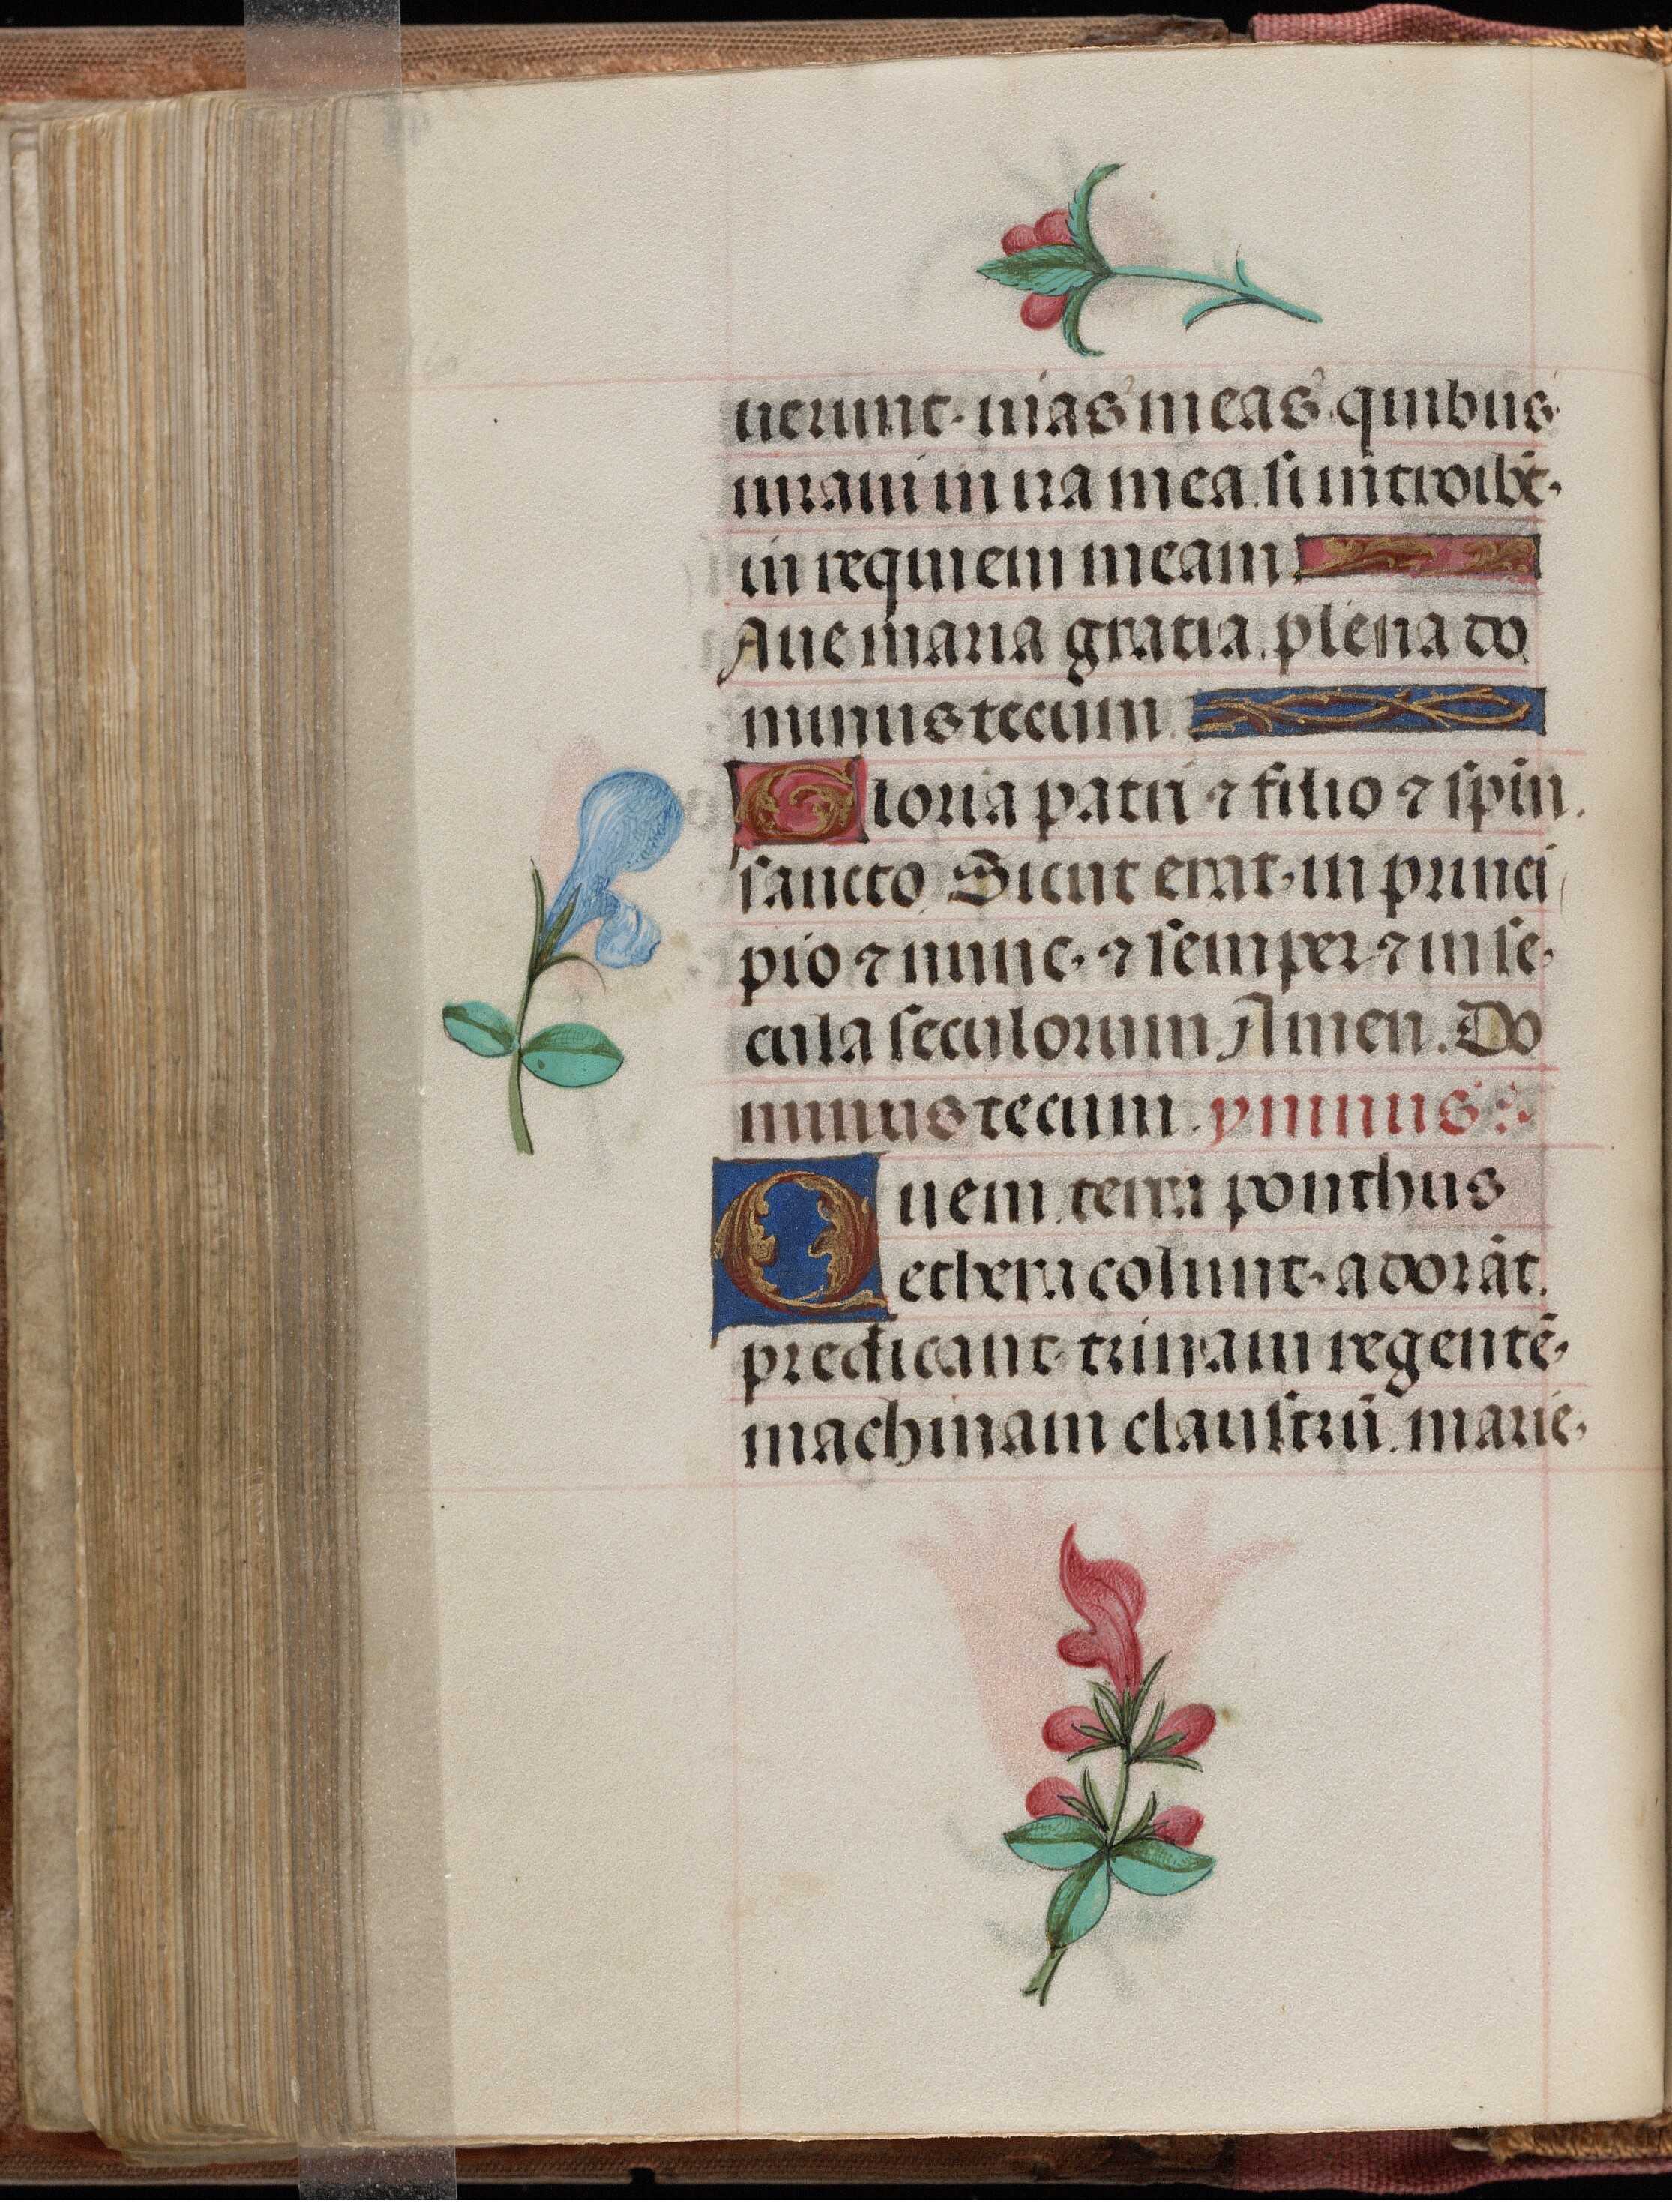 uerunt. uias meas quibus
iuraui in ira mea. si introibūt.
in requiem meam
Aue maria gratia. plena do
minus tecum.
Gloria patri ⁊ filio ⁊ spiri.
sancto. Sicut erat. in princi
pio ⁊ nunc. ⁊ semper ⁊ in se.
cula seculorum Amen. Do
minus tecum. ymnus
Quem. terra ponthus
ethera colunt. adorāt.
predicant. trinam regentē.
machinam claustrū. marie.